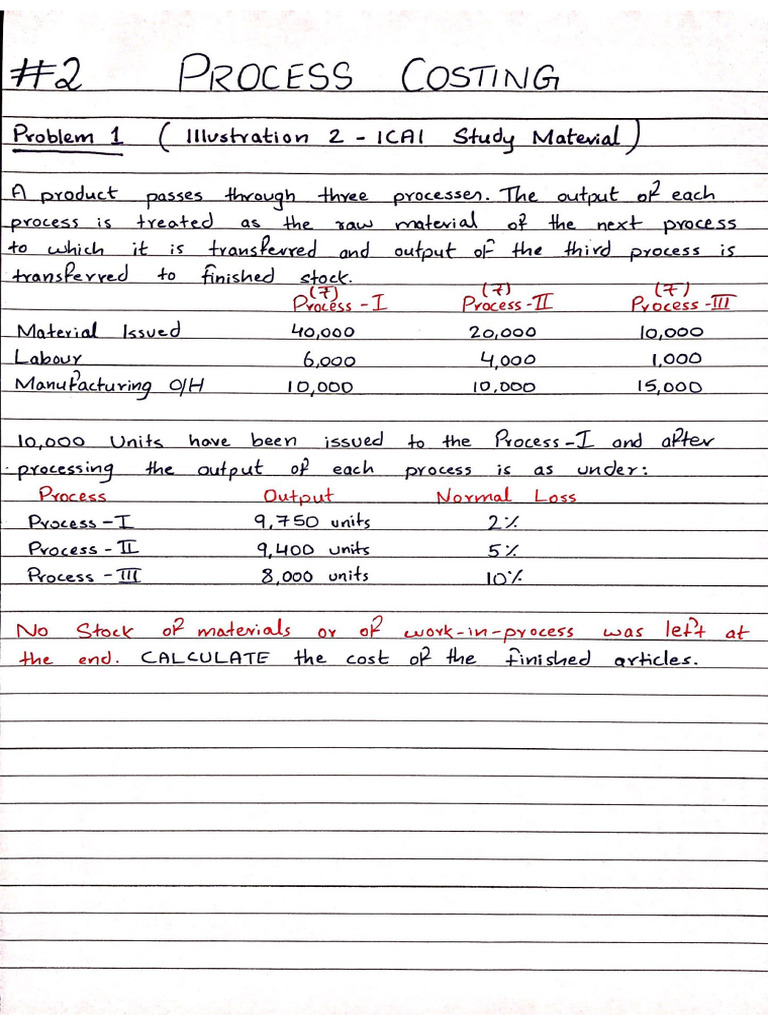 #2 PROCESS COSTING
Problem 1 ( Illustration 2 - ICAI Study Material )
A product passes through three processes. The output of each
process is treated as the raw material of the next process
to which it is transferred and output of the third process is
transferred to finished stock.
(₹) (₹) (₹)
Process-I Process-II Process-III
Material Issued 40,000 20,000 10,000
Labour 6,000 4,000 1,000
Manufacturing O/H 10,000 10,000 15,000
10,000 Units have been issued to the Process-I and after
processing the output of each process is as under:
Process Output Normal Loss
Process-I 9,750 units 2%
Process-II 9,400 units 5%
Process-III 8,000 units 10%
No Stock of materials or of work-in-process was left at
the end. CALCULATE the cost of the finished articles.